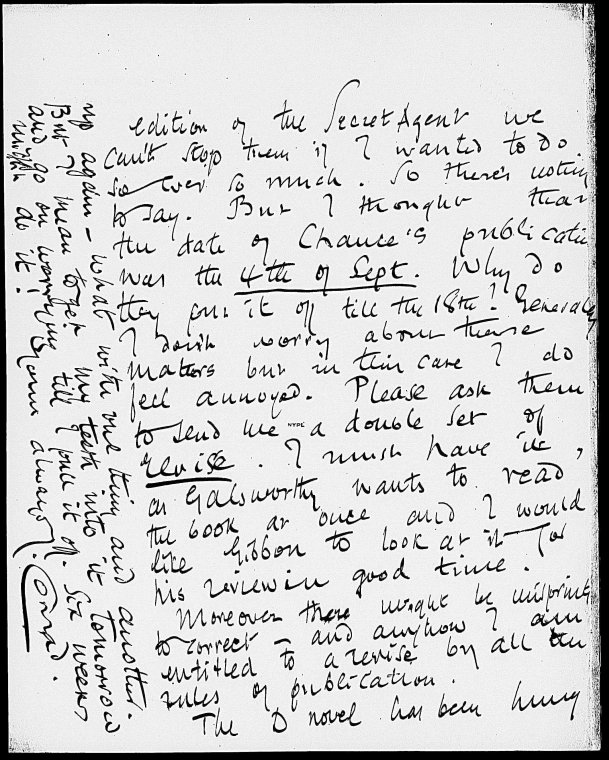 edition of the Secret Agent we
can't stop them if I wanted to do
so ever so much. So there's nothing
to say. But I thought that
the date of Chance's publicatio
was the 4th of Sept. Why do
they put it off till the 18th? Generally
I don't worry about these
matters but in this case I do
feel annoyed. Please ask them
to send me a double set of
NYPL
revise. I must have it,
as Galsworthy wants to read
the book at once and I would
like Gibbon to look at it for
his review in good time.
Moreover there might be misprints
to correct – and anyhow I am
entitled to a revise by all the
rules of publication.
The D novel has been hung
up again – what with one thing and another.
But I mean to get my teeth into it tomorrow
and go on worrying till I pull it off. Six weeks
might do it. Yours always, Conrad.